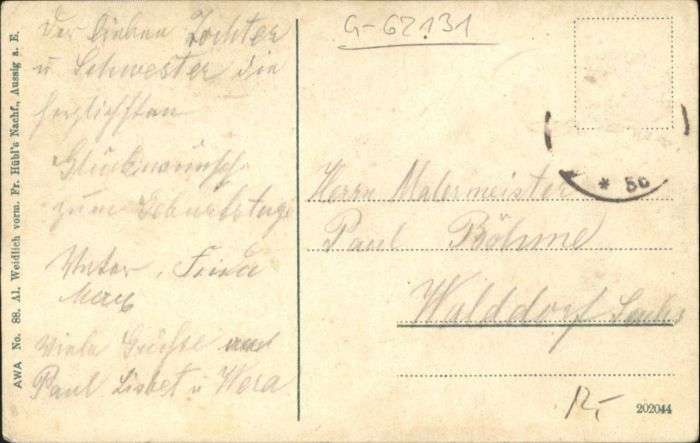 G-62131
Der lieben Tochter
u Schwester die
herzlichsten
Glückwünsch
zum Geburtstage
Vater, Frida
Max
Viele Grüße
Paul Lisbet u Wera
Herrn Malermeister
Paul Böhme
Walddorf Sachs
* 5c
12,-
202044
AWA No. 88. Al. Weidlich vorm. Fr. Hübl's Nachf., Aussig a. E.